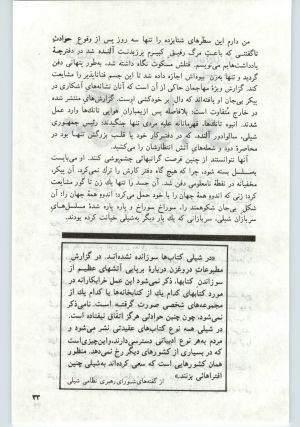 من دارم این سطرهای شتابزده را تنها سه روز پس از وقوع حوادث
ناگفتنی که باعث مرگ رفیق کبیرم پرزیدنت آلنده شد در دفترچهٔ
یادداشت‌هایم می‌نویسم. قتلش مسکوت نگاه داشته شد، به‌طور پنهانی دفن
گردید و تنها به‌زن بیوه‌اش اجازه داده شد تا این جسد فناناپذیر را مشایعت
کند. گزارش ویژهٔ مهاجمان حاکی از آن است که آنان نشانه‌های آشکاری در
پیکر بی‌جان او یافته‌اند که دال بر خودکشی اوست. گزارش‌های منتشر شده
در خارج متفاوت است: بلافاصله پس‌ازبمباران هوایی تانک‌ها وارد عمل
شدند. انبوه تانك‌ها، قهرمانانه علیه مردی تنها جنگیدند: رئیس‌جمهوری
شیلی، سالوادور آلنده، که در دفترکار خود با قلب بزرگش تنها بود در
محاصرهٔ دود و شعله‌های آتش انتظارشان را می‌کشید.
آنها نتوانستند از چنین فرصت گرانبهایی چشم‌پوشی کنند. او می‌بایست
به‌مسلسل بسته شود، چرا که هیچ گاه دفتر کارش را ترك نمی‌کرد. آن پیکر،
مخفیانه در نقطهٔ نامعلومی دفن شد. آن جسد را تنها یك زن تا گور مشایعت
کرد، زنی که اندوه همهٔ جهان را با خود حمل می‌کرد؛ اندوه همهٔ جهان را؛ آن
شکل بی‌جان شکوهمند را، سوراخ سوراخ و پاره پاره شدهٔ مسلسل‌های
سربازان شیلی، سربازانی که یك بار دیگر به‌شیلی خیانت کرده بودند.
«در شیلی کتاب‌ها سوزانده نشده‌اند. در گزارش
مطبوعات دروغزن دربارهٔ برپایی آتشهای عظیم از
سوزاندن کتابها، ذکر نمی‌شود این عمل خرابکارانه در
مورد کتابهای کدام یك از کتابخانه‌ها یا کدام یك از
مجموعه‌های شخصی صورت گرفته است. نامی‌ذکر
نمی‌شود، چون چنین حوادثی هرگز اتفاق نیفتاده است.
در شیلی همه نوع کتاب‌های عقیدتی نشر می‌شود و
مردم به‌هر نوع ادبیاتی دسترسی‌دارند، واین‌چیزی‌است
که در بسیاری از کشورهای دیگر رخ نمی‌دهد. منظور
همان کشورهایی است که سعی کرده‌اند به‌شیلی چنین
افتراهائی بزنند.»
از گفته‌های‌شورای‌رهبری نظامی شیلی
۳۳